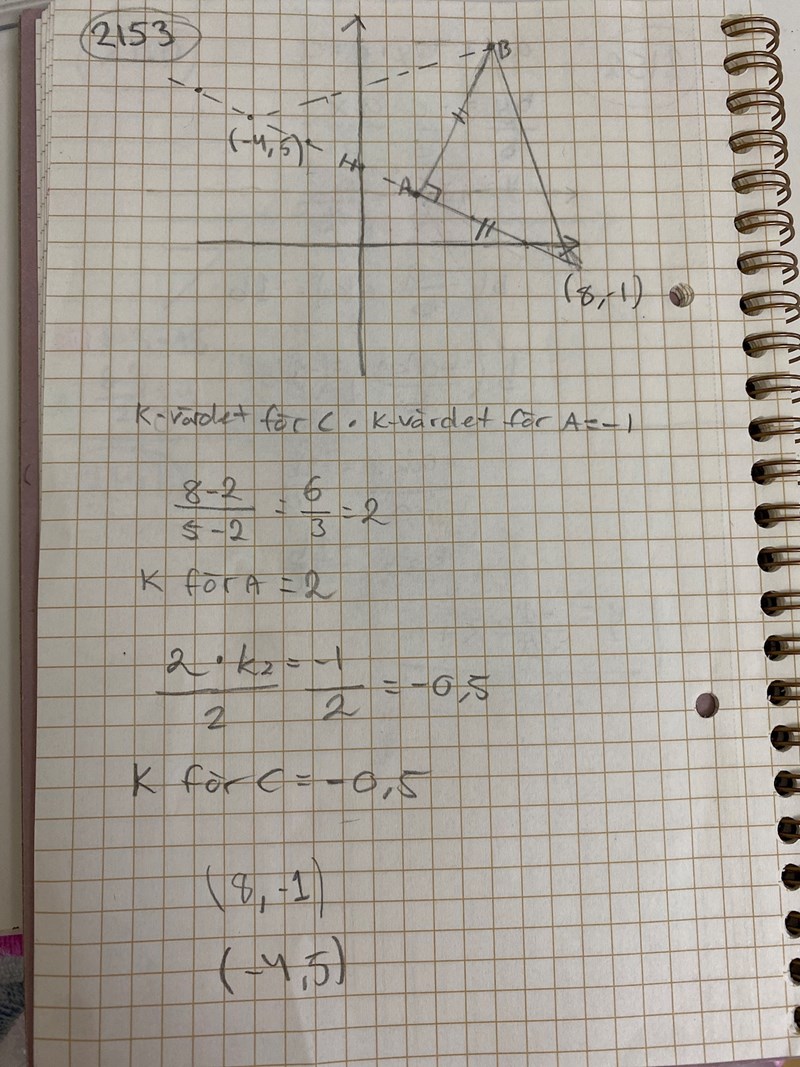 2153
B
(-4,5)
4
A
(8,-1)
K-värdet för C · K-värdet för A = -1
8-2/5-2 = 6/3 = 2
K för A = 2
2·k₂/2 = -1/2 = -0,5
K för C = -0,5
(8,-1)
(-4,5)